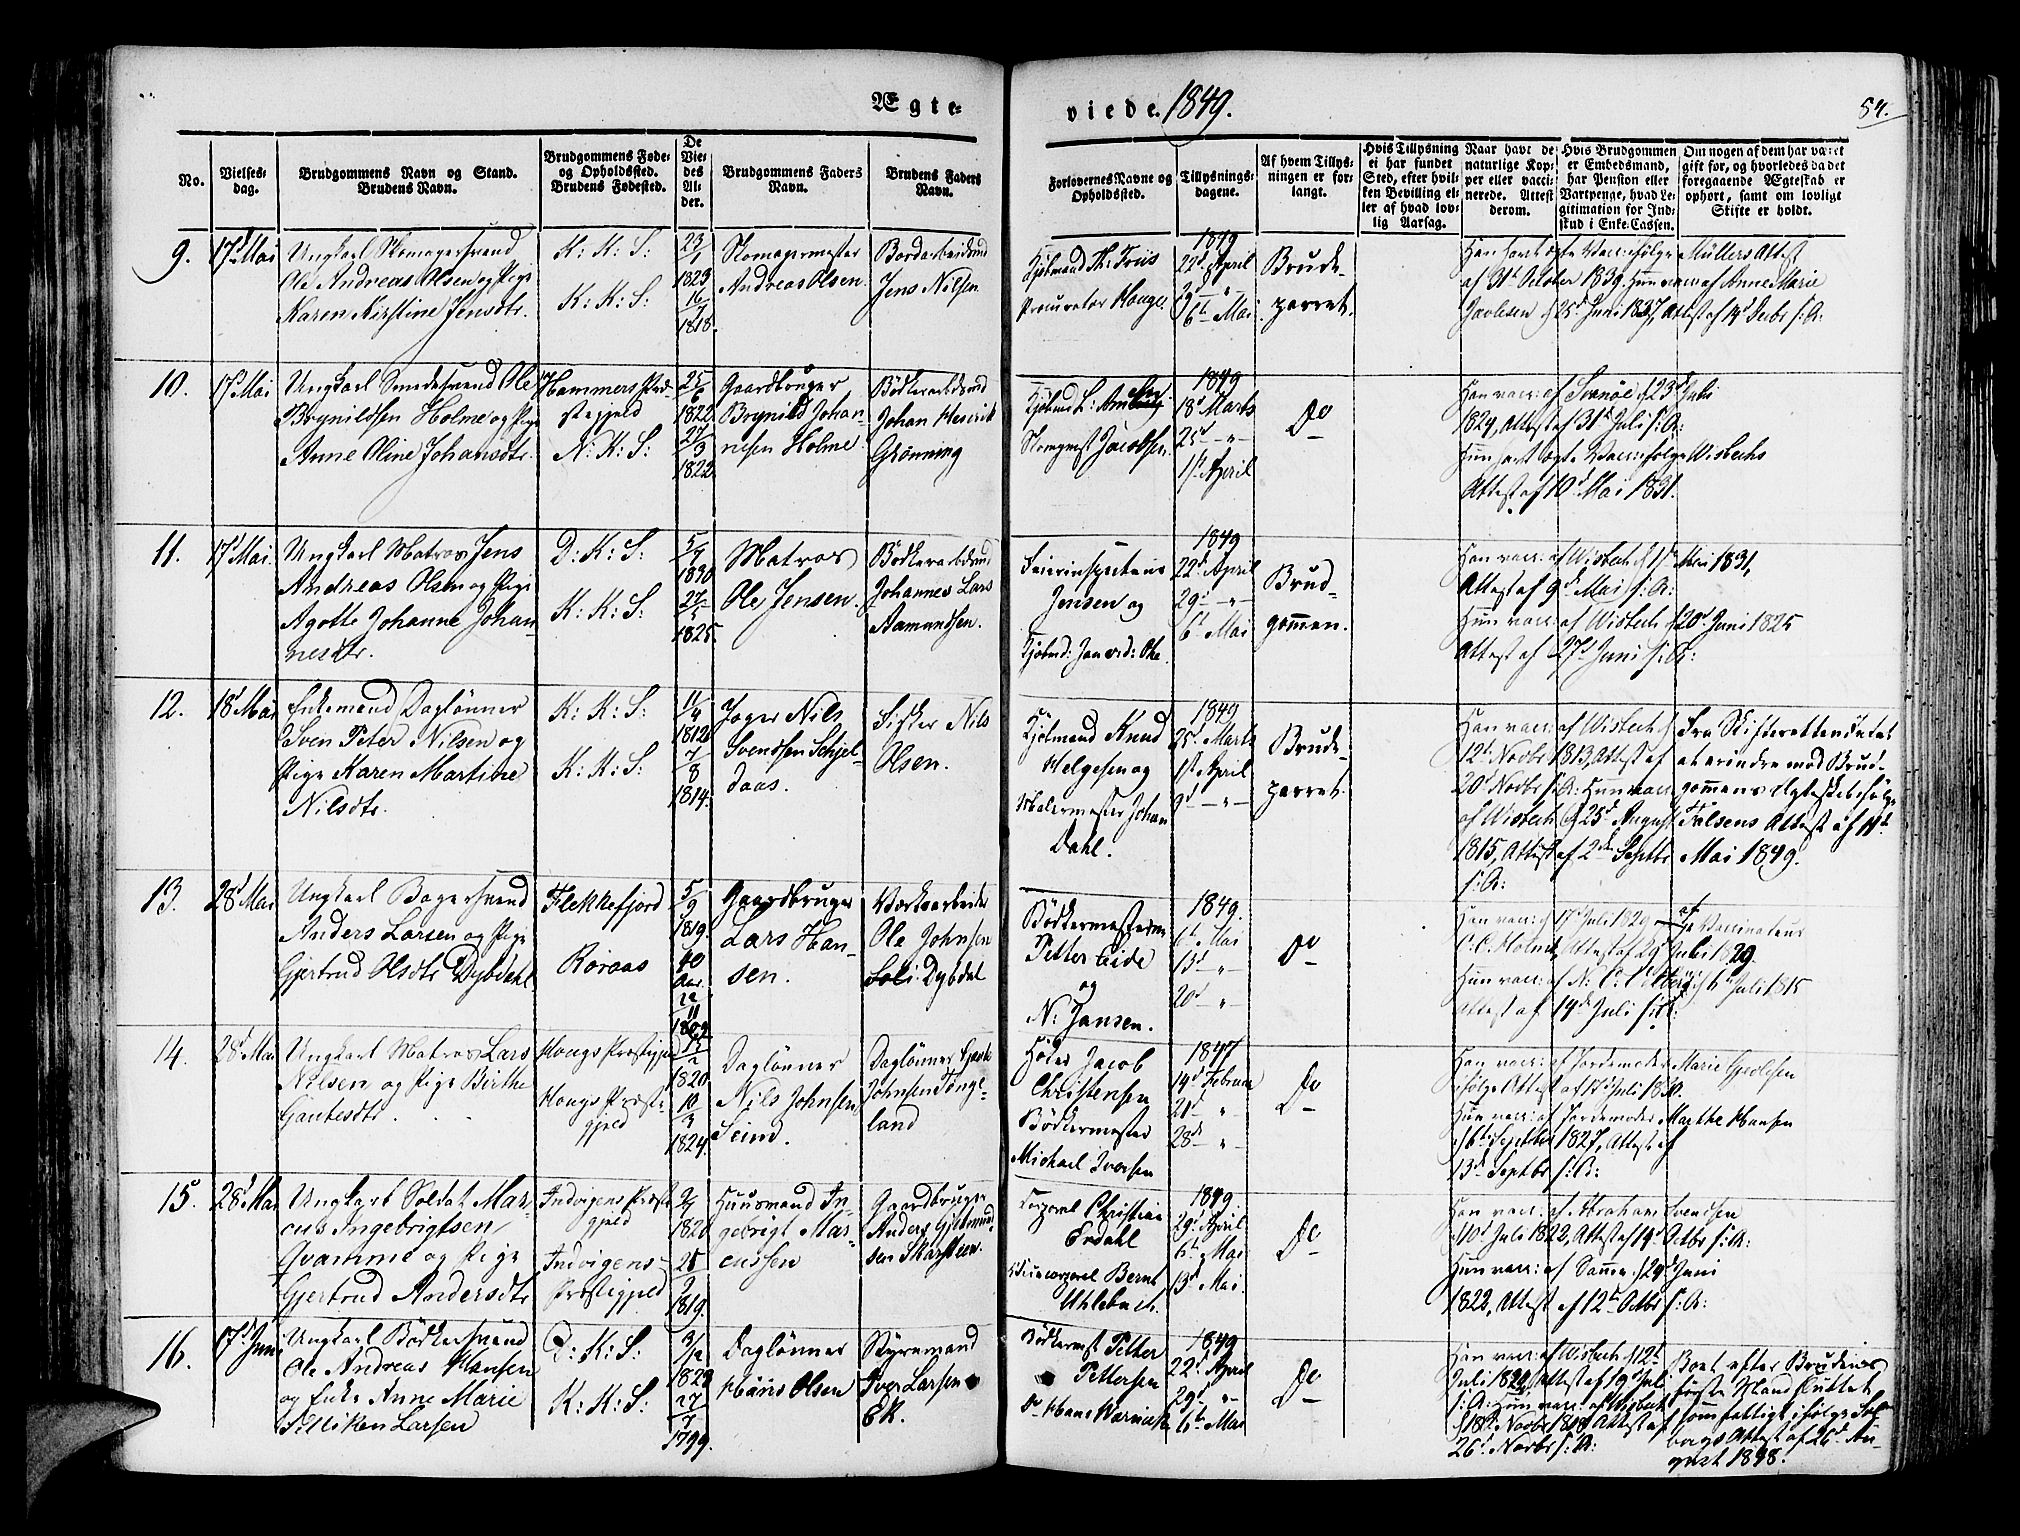 Ægte-
viede. 1849.
54.
No.
Vielses-
dag.
Brudgommens Navn og Stand.
Brudens Navn.
Brudgommens Føde-
og Opholdssted.
Brudens Fødested.
De
Vie-
des
Al-
der.
Brudgommens Faders
Navn.
Brudens Faders
Navn.
Forlovernes Navne og
Opholdssted.
Tillysnings-
dagene.
Af hvem Tillys-
ningen er for-
langt.
Hvis Tillysning
ei har fundet
Sted, efter hvil-
ken Bevilling el-
ler af hvad lov-
lig Aarsag.
Naar havt de
naturlige Kop-
per eller vacci-
nerede. Attest
derom.
Hvis Brudgommen
er Embedsmand,
har Pension eller
Vartpenge, hvad Le-
gitimation for Ind-
skud i Enke-Cassen.
Om nogen af dem har været
gift før, og hvorledes da det
foregaaende Ægteskab er
ophort, samt om lovligt
Skifte er holdt.
9.
17d Mai
Ungkarl Skomagersvend
Ole Andreas Olsen og Pige
Karen Kirstine Jensdtr.
K: K: S:
K: K: S:
23/1
1823
16/7
1818.
Skomagermester
Andreas Olsen.
Bordarbeidsmd
Jens Nilsen
Kjøbmand Th. Friis
Procurator Hauge.
1849
22d April
29d - " -
6t Mai.
Brude-
parret.
Han havt ægte Vacc: ifølge Müllers Attest
af 31t October 1839. Hun vacc: af Anne Marie
25d Juni 1837, Attest af 14d Decbr s: A:
10.
17d Mai
Ungkarl Smedesvend Ole
Brynildsen Holme og Pige
Anne Oline Johansdtr.
Hammers Præ-
stegjeld
N: K: S:
25/6
1822
27/3
1822.
Gaardbruger
Brynild Johan-
nesen Holme.
Bødkerarbdsmd
Johan Henrik
Grønning
Skomgmst Jacobsen.
1849
18d Marts
25d - " -
1st April
Do
Han vacc: af Svanøe d 23d Juli
1829, Attest af 31t Juli s: A:
Hun havt ægte Vacc: ifølge Wisbechs
Attest af 10d Mai 1831.
11.
17d Mai.
Ungkarl Matros Jens
Andreas Olsen og Pige
Agotte Johanne Johan-
nesdtr.
D: K: S:
K: K: S:
5/7
1830
27/5
1825.
Matros
Ole Jensen.
Bødkerarbdsmd
Johannes Lars
Aamundsen.
Feierinspecteur
Jensen og
1849
22d April
29d - " -
6t Mai
Brud-
gommen.
Han vacc: af Wisbech d 1ste Mai 1831,
Attest af 9d Mai s: A:
Hun vacc: af Wisbech d 20d Juni 1825
Attest af 27d Juni s: A:
12.
18d Mai
Enkemand Daglønner
Sven Peter Nilsen og
Pige Karen Martine
Nilsdtr.
K: K: S:
K: K: S:
11/4
1812
7/8
1814.
Jager Nils
Svendsen Schjel-
daas.
Fisker Nils
Olsen.
Kjøbmand Knud
Helgesen og
Malermester Johan
Dahl.
1849
25d Marts
1st April
9d - " -
Brude-
parret.
Han vacc: af Wisbech d
12t Novbr 1813, Attest af
20d Novbr s: A: Hun vacc:
af Wisbech d 25d August
1815, Attest af 2den Septbr
s: A:
Fra Skifteretten Intet
at erindre mod Brud-
gommens Ægteskab ifølge
Falsens Attest af 11t
Mai 1849.
13.
28d Mai
Ungkarl Bagersvend
Anders Larsen og Pige
Gjertrud Olsdtr Dybdahl
Flekkefjord
Røraas
5/9
1819.
40
Aar.
11
1809
Gaardbruger
Lars Han-
sen.
Værksarbeider
Ole Johnsen
Dybdal
Bødkermesterne
Petter Eide
og
N: Jansen.
1849.
6t Mai
13d - " -
20d - " -
Do
Han vacc: d 17d Juli 1829 af Vaccinateur
C: C. Holmd, Attest af 29 Juli 1829.
Hun vacc: af N: C: d 6te Juli 1815
Attest af 19de Juli s: A:
14.
28d Mai
Ungkarl Matros Lars
Nilsen og Pige Birthe
Gautesdtr.
Hougs Præstegjeld
Hougs Præste-
gjeld
12/2
1820
10/3
1824.
Daglønner
Nils Johnsen
Seim.
Daglønner Gaute
Johnsen Tønge-
land
Jacob
Christensen
Bødkermester
Michael Iversen
1847
14d Februar
21d - " -
28de - " -
Do
Han vacc: af Jordemoder Marie Gjedlesen
ifølge Attest af 17d Juli 1830.
Hun vacc: af Jordemoder Marthe Hansen
d 6te Septbr 1827, Attest af
13d Septbr s: A:
15.
28d Mai
Ungkarl Soldat Mar-
cus Ingebrigtsen
Qvamme og Pige
Gjertrud Andersdtr
Indvigens Præste-
gjeld
Indvigens
Præstegjeld
2/7
1820
21/2
1819.
Huusmand In-
gebrigt Mar-
cussen
Gaardbruger
Anders Gjetmund-
sen Skarsteen.
Corporal Christian
Erdahl
Bernt
Uhlebach.
1849
29d April
6t Mai
13d Mai.
Do
Han vacc: af Abraham Svendsen
d 10d Juli 1822, Attest af 14d Octbr s: A:
Hun vacc: af Samme d 29d Juni
1822, Attest af 12t Octbr s: A:
16.
17d Juni
Ungkarl Bødkersvend
Ole Andreas Hansen
og Enke Anne Marie
Larsen
D: K: S:
K: K: S:
3/12
1823
27/7
1799.
Daglønner
Hans Olsen
Styrmand
Iver Larsen
Ek.
Bødkermst Petter
Pettersen
1849
22d April
29d - " -
6t Mai
Do
Han vacc: af Wisbech d 12t
Juli 1824, Attest af 19d Juli
s: A: Hun vacc: af Wisbech
d 18d Novbr 1818 Attest af
26d Novbr s: A:
Boet efter Brudens
første Mand sluttet
som fattigt ifølge Sol-
bergs Attest af 26d Au-
gust 1848.